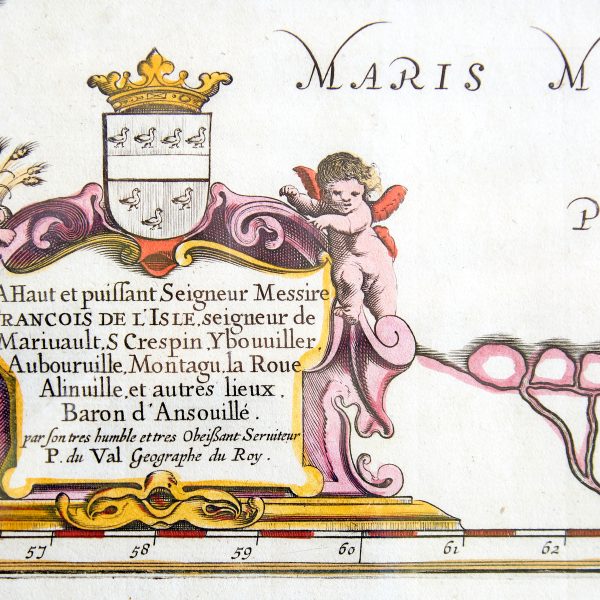 MARIS M
P
A Haut et puissant Seigneur Messire
FRANCOIS DE L'ISLE, seigneur de
Mariuault, S Crespin, Ybouuiller,
Aubouruille, Montagu, la Roue,
Alinuille, et autres lieux,
Baron d'Ansouillé.
par son tres humble et tres Obeissant Seruiteur
P. du Val Geographe du Roy.
57 58 59 60 61 62